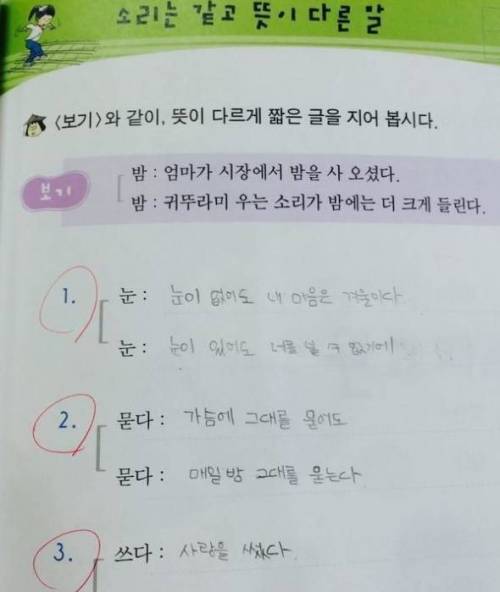 소리는 같고 뜻이 다른 말
<보기>와 같이, 뜻이 다르게 짧은 글을 지어 봅시다.
보기
밤 : 엄마가 시장에서 밤을 사 오셨다.
밤 : 귀뚜라미 우는 소리가 밤에는 더 크게 들린다.
1. 눈 : 눈이 없어도 내 마음은 겨울이다
눈 : 눈이 있어도 너를 볼 수 없기에
2. 묻다 : 가슴에 그대를 묻어도
묻다 : 매일 밤 그대를 묻는다
3. 쓰다 : 사랑을 썼다